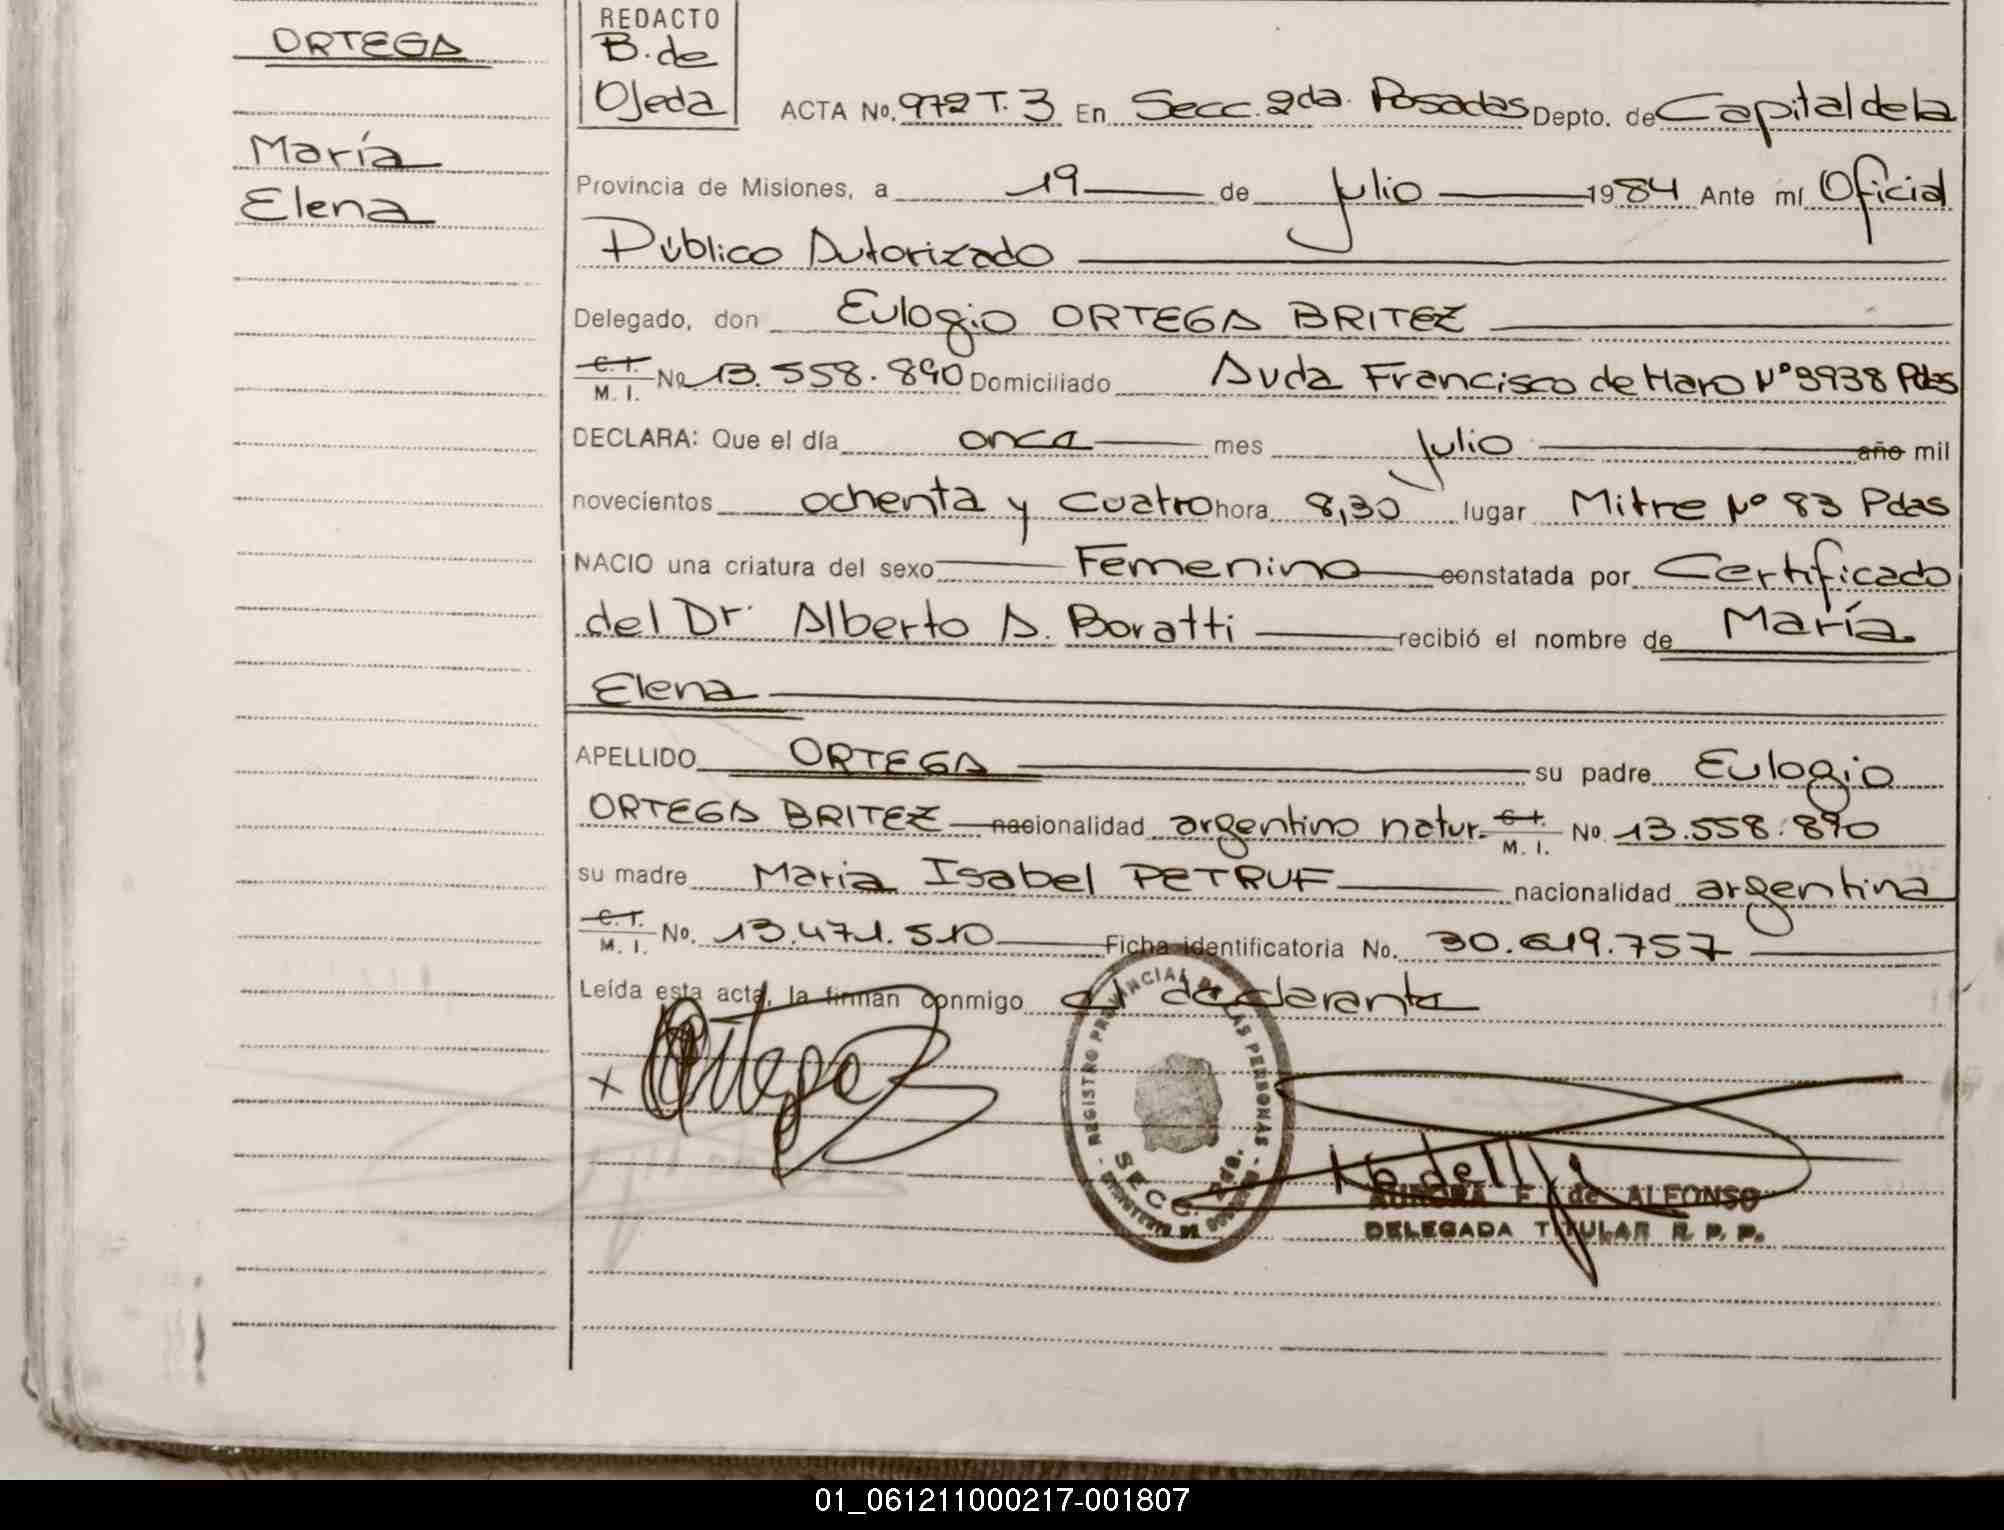 ORTEGA
María
Elena
REDACTO
B. de
Ojeda
ACTA No. 972 T. 3 En Secc. 2da. Posadas Depto. de Capital de la
Provincia de Misiones, a 19 de Julio 1984 Ante mí Oficial
Público Autorizado
Delegado, don Eulogio ORTEGA BRITEZ
C.I. M. I. No 13.558.890 Domiciliado Avda Francisco de Haro Nº 3938 Pdas
DECLARA: Que el día once mes Julio año mil
novecientos ochenta y cuatro hora 8,30 lugar Mitre Nº 83 Pdas
NACIO una criatura del sexo Femenino constatada por Certificado
del Dr. Alberto A. Boratti recibió el nombre de María
Elena
APELLIDO ORTEGA su padre Eulogio
ORTEGA BRITEZ nacionalidad argentino natur. C.I. M. I. No. 13.558.890
su madre Maria Isabel PETRUF nacionalidad argentina
C.I. M. I. No. 13.471.510 Ficha identificatoria No. 30.619.757
Leída esta acta, la firman conmigo el declarante
x Ortega
REGISTRO PROVINCIAL DE LAS PERSONAS
SECC. 2da.
AURORA F. de ALFONSO
DELEGADA TITULAR R. P. P.
01_061211000217-001807